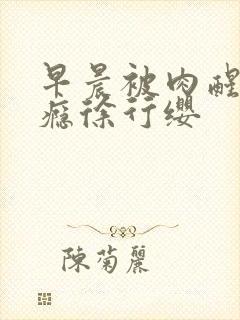 早晨被肉醒
瘾徐行缨
陳菊麗